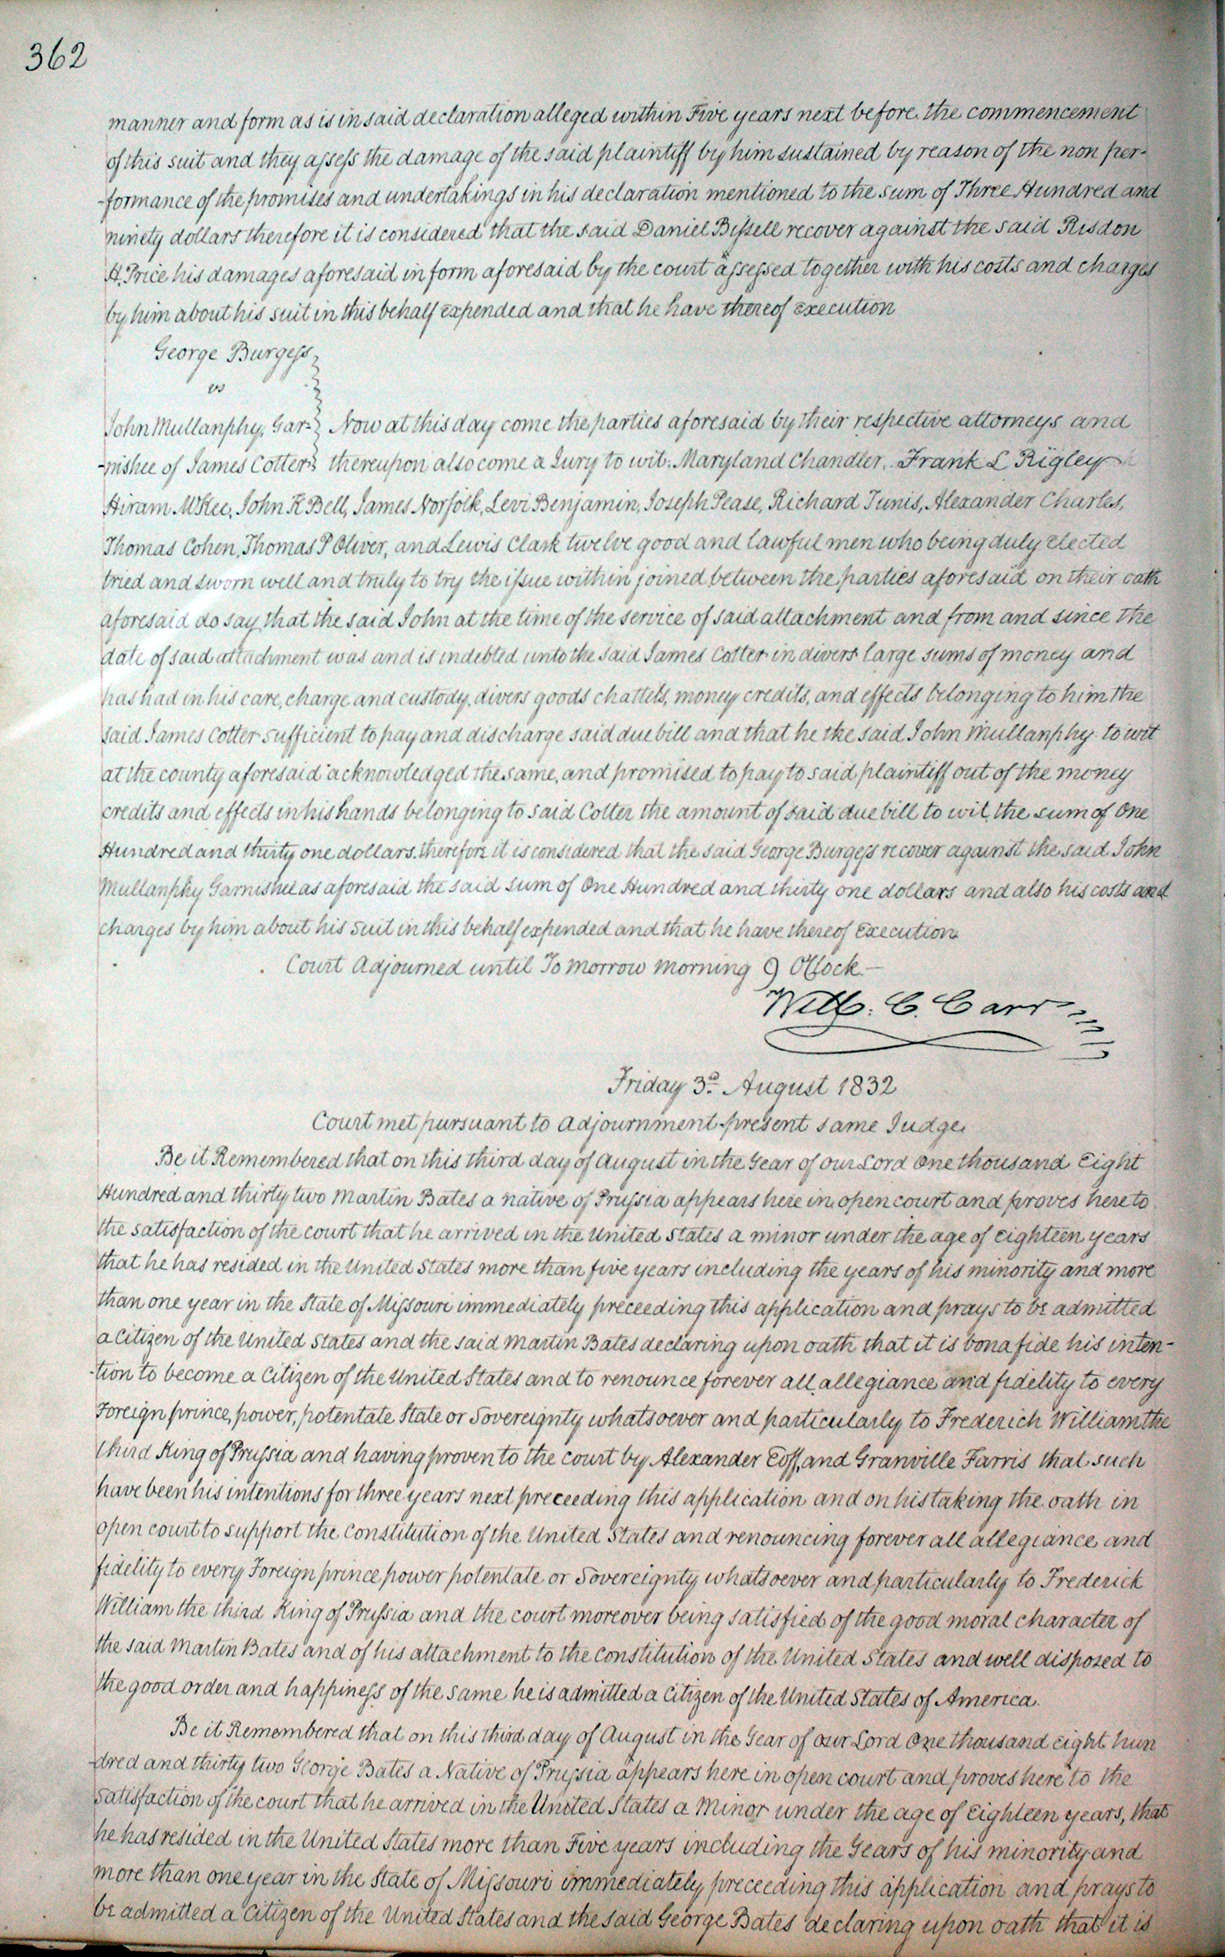 362
manner and form as is in said declaration alleged within Five years next before the commencement
of this suit and they assess the damage of the said plaintiff by him sustained by reason of the non per-
-formance of the promises and undertakings in his declaration mentioned to the sum of Three Hundred and
ninety dollars therefore it is considered that the said Daniel Bissell recover against the said Risdon
H. Price his damages aforesaid in form aforesaid by the court assessed together with his costs and charges
by him about his suit in this behalf expended and that he have thereof Execution
George Burgess
vs
John Mullanphy, Gar- Now at this day come the parties aforesaid by their respective attorneys and
-nishee of James Cotter thereupon also come a Jury to wit: Maryland Chandler, Frank L Rigley
Hiram McKee, John K Bell, James Norfolk, Levi Benjamin, Joseph Pease, Richard Tunis, Alexander Charles,
Thomas Cohen, Thomas P Oliver, and Lewis Clark twelve good and lawful men who being duly elected
tried and sworn well and truly to try the issue within joined between the parties aforesaid on their oath
aforesaid do say that the said John at the time of the service of said attachment and from and since the
date of said attachment was and is indebted unto the said James Cotter in divers large sums of money and
has had in his care, charge and custody, divers goods chattels, money credits, and effects belonging to him the
said James Cotter sufficient to pay and discharge said due bill and that he the said John Mullanphy to wit
at the county aforesaid acknowledged the same, and promised to pay to said plaintiff out of the money
credits and effects in his hands belonging to said Cotter the amount of said due bill to wit, the sum of One
Hundred and thirty one dollars. therefore it is considered that the said George Burgess recover against the said John
Mullanphy Garnishee as aforesaid the said sum of One Hundred and thirty one dollars and also his costs and
charges by him about his suit in this behalf expended and that he have thereof Execution
Court Adjourned until To morrow morning 9 OClock.—
Will. C. Carr
Friday 3d August 1832
Court met pursuant to adjournment present same Judge.
Be it Remembered that on this third day of August in the Year of our Lord One thousand Eight
Hundred and thirty two Martin Bates a native of Prussia appears here in open court and proves here to
the satisfaction of the court that he arrived in the United States a minor under the age of eighteen years
that he has resided in the United States more than five years including the years of his minority and more
than one year in the State of Missouri immediately preceeding this application and prays to be admitted
a Citizen of the United States and the said Martin Bates declaring upon oath that it is bona fide his inten-
-tion to become a Citizen of the United States and to renounce forever all allegiance and fidelity to every
Foreign prince, power, potentate State or Sovereignty whatsoever and particularly to Frederich William the
third King of Prussia and having proven to the court by Alexander Eoff, and Granville Farris that such
have been his intentions for three years next preceeding this application and on his taking the oath in
open court to support the Constitution of the United States and renouncing forever all allegiance and
fidelity to every Foreign prince power potentate or Sovereignty whatsoever and particularly to Frederick
William the third King of Prussia and the court moreover being satisfied of the good moral character of
the said Martin Bates and of his attachment to the Constitution of the United States and well disposed to
the good order and happiness of the same he is admitted a Citizen of the United States of America.
Be it Remembered that on this third day of August in the Year of our Lord One thousand eight hun
-dred and thirty two George Bates a Native of Prussia appears here in open court and proves here to the
satisfaction of the court that he arrived in the United States a Minor under the age of Eighteen years, that
he has resided in the United States more than Five years including the Years of his minority and
more than one year in the State of Missouri immediately preceeding this application and prays to
be admitted a Citizen of the United States and the said George Bates declaring upon oath that it is